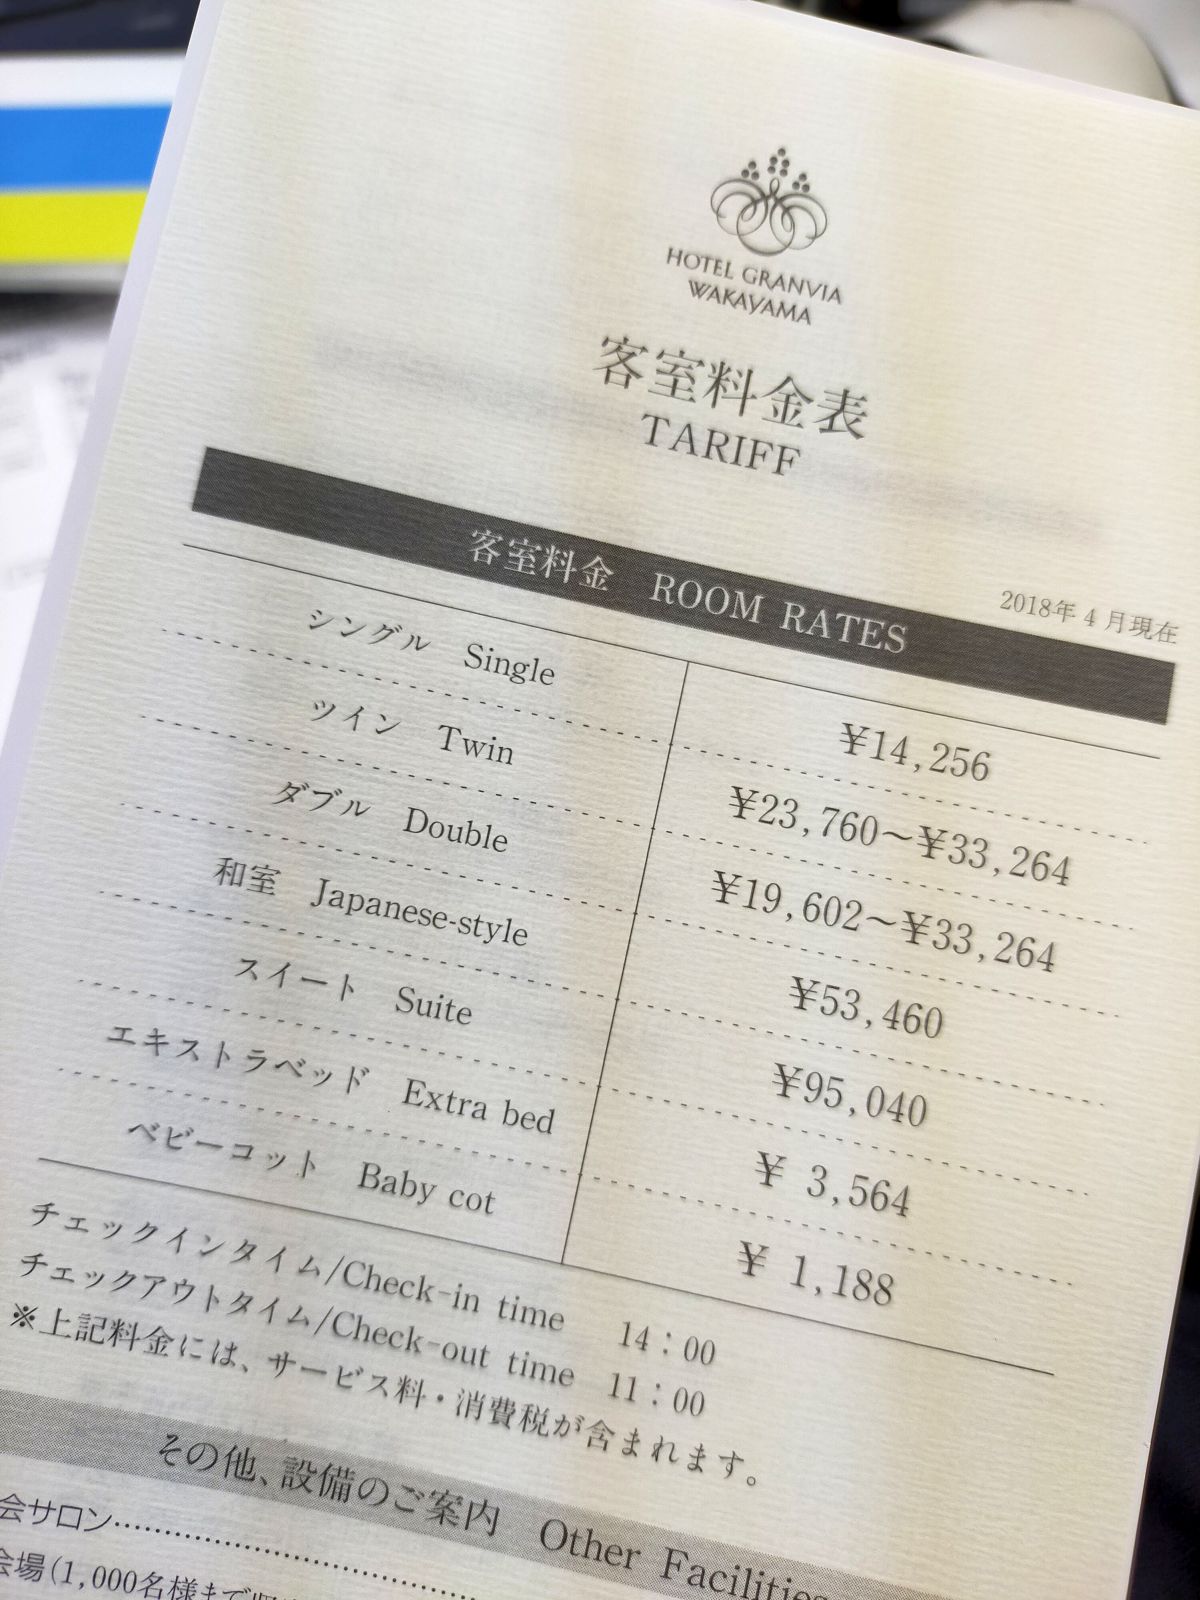 HOTEL GRANVIA
WAKAYAMA
客室料金表
TARIFF
2018年4月現在
客室料金 ROOM RATES
シングル Single ¥14,256
ツイン Twin ¥23,760～¥33,264
ダブル Double ¥19,602～¥33,264
和室 Japanese-style ¥53,460
スイート Suite ¥95,040
エキストラベッド Extra bed ¥ 3,564
ベビーコット Baby cot ¥ 1,188
チェックインタイム/Check-in time 14：00
チェックアウトタイム/Check-out time 11：00
※上記料金には、サービス料・消費税が含まれます。
その他、設備のご案内 Other Facilities
会サロン
会場(1,000名様まで